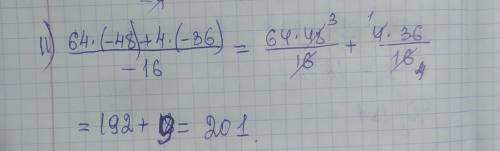 11) (64·(-48)+4·(-36))/(-16) = (64·48³)/16 + (¹4·36)/16₄
= 192 + 9 = 201.